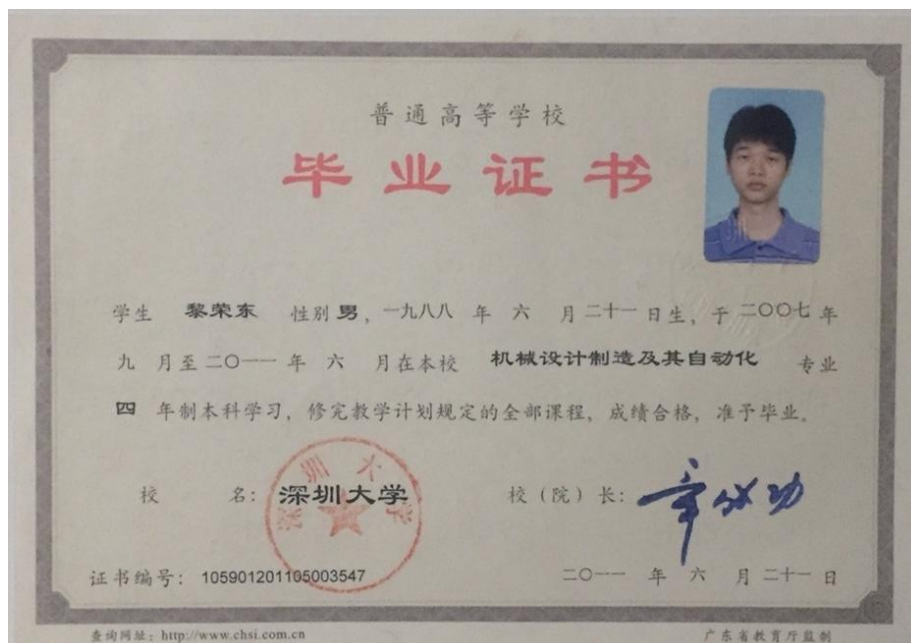 普通高等学校
毕业证书
学生 黎荣东 性别 男，一九八八 年 六 月 二十一 日生，于 二〇〇七 年
九 月至 二〇一一 年 六 月在本校 机械设计制造及其自动化 专业
四 年制本科学习，修完教学计划规定的全部课程，成绩合格，准予毕业。
校 名：深圳大学 校（院）长：章必功
深圳大学
证书编号：105901201105003547 二〇一一 年 六 月 二十一 日
查询网址：http://www.chsi.com.cn 广东省教育厅监制